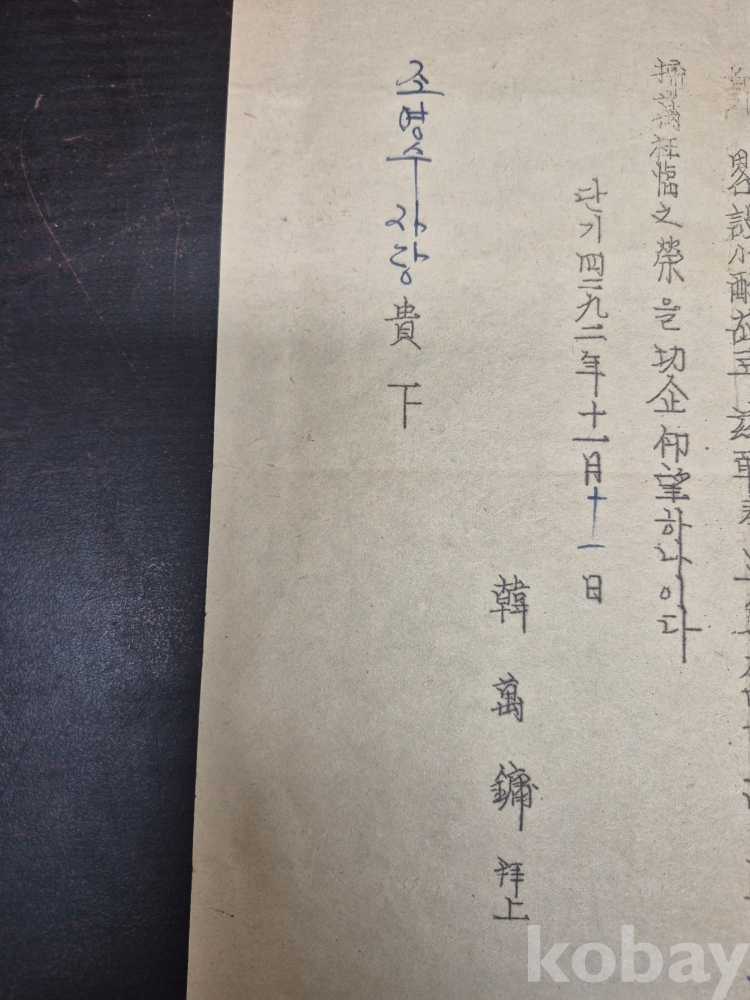 畧設小酌
掃萬枉臨之榮을 切企仰望하나이다
단기 四二九二年十一月十一日
韓萬鏞 拜上
조영수 사장 貴下
kobay